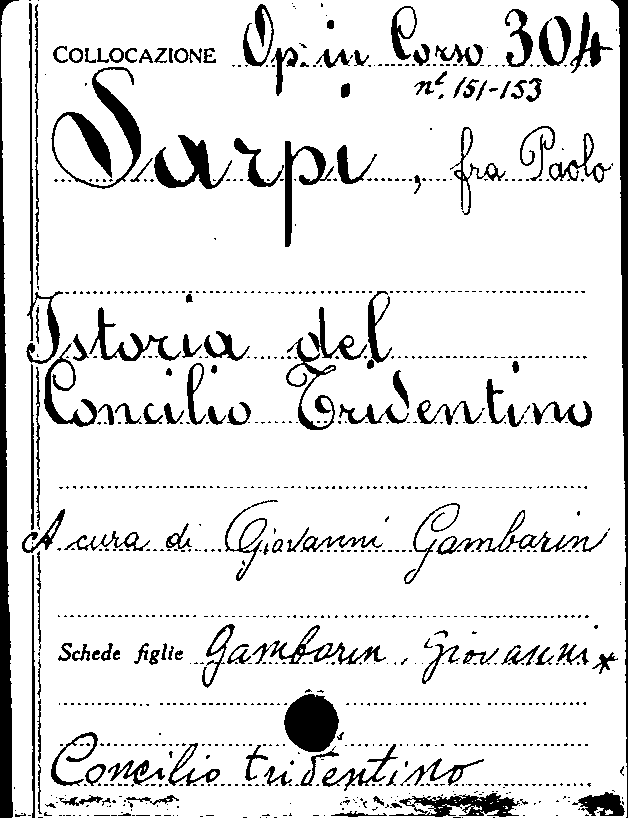 COLLOCAZIONE Op. in Corso 304
ni. 151-153
Sarpi, fra Paolo
Istoria del
Concilio Tridentino
A cura di Giovanni Gambarin
Schede figlie Gambarin, Giovanni *
Concilio tridentino